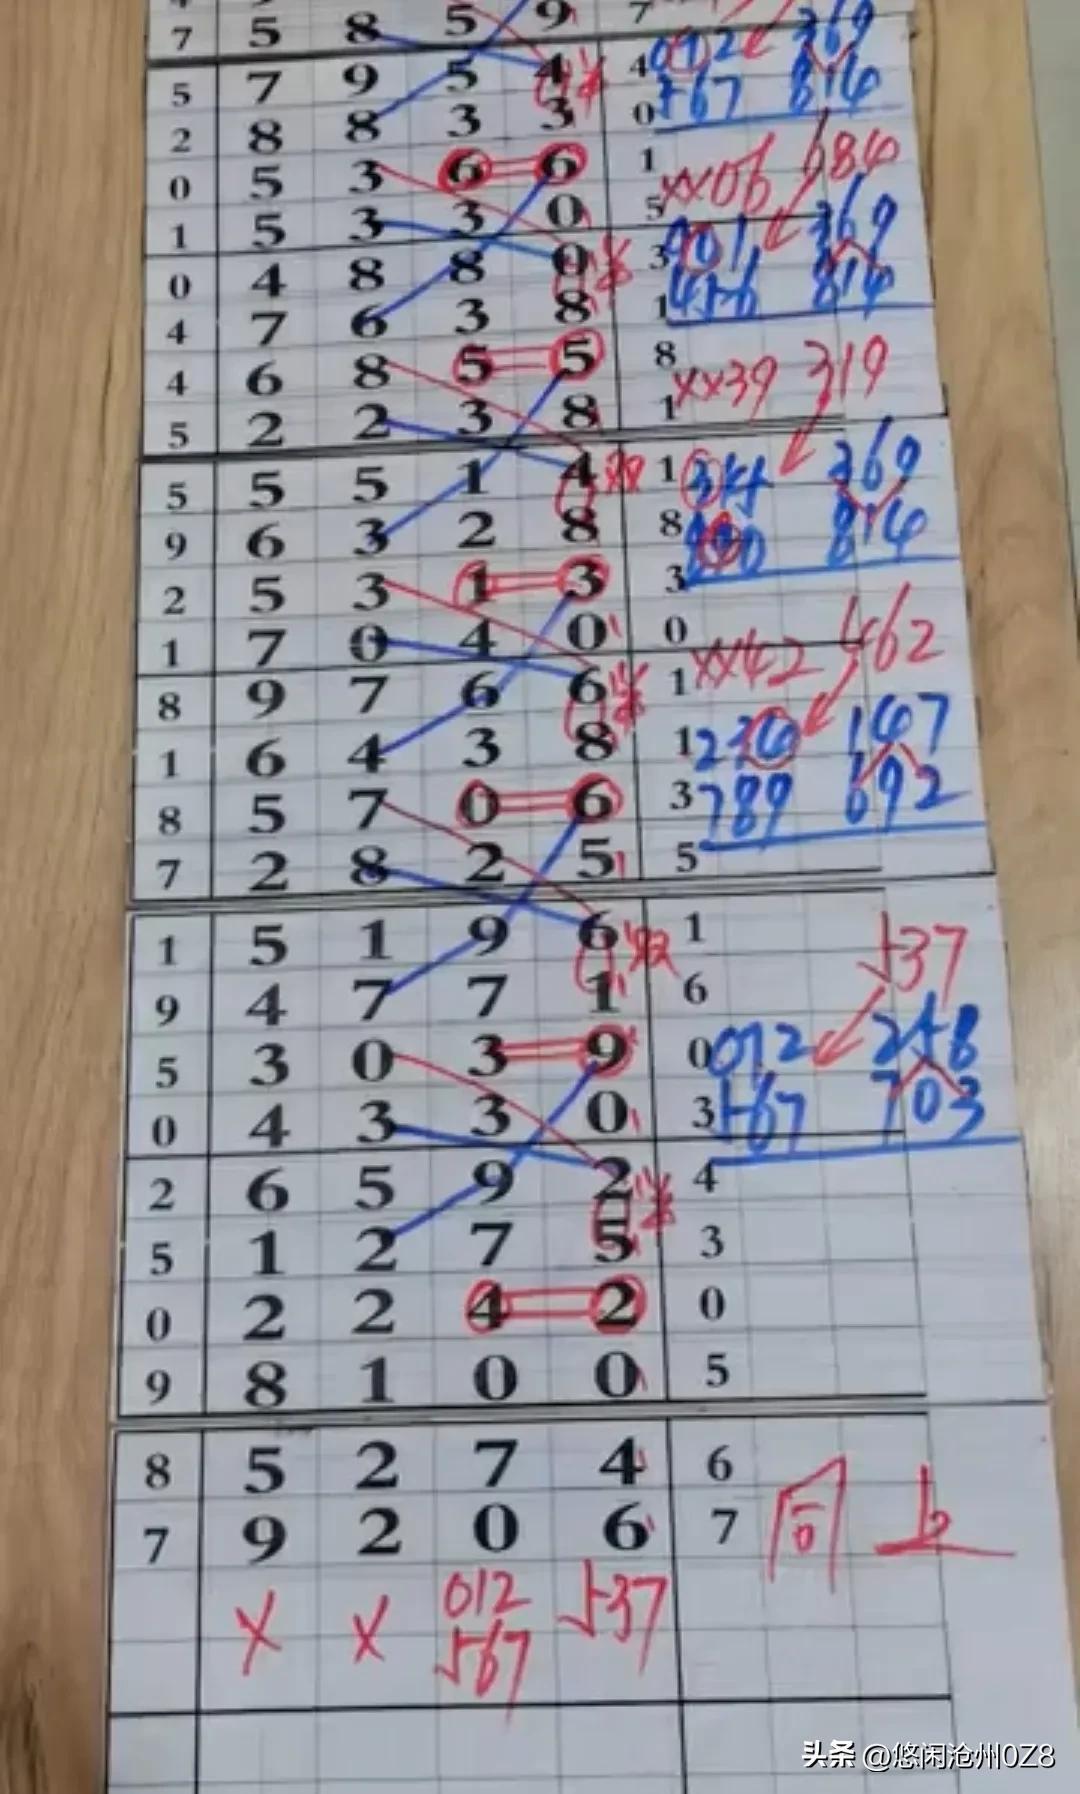 7 5 8 5 9 7
5 7 9 5 4 4 092 369
2 8 8 3 3 0 567 814
0 5 3 6 6 1 xx06 684
1 5 3 3 0 5 369
0 4 8 8 0 3 901 814
4 7 6 3 8 1 456
4 6 8 5 5 8 xx39 319
5 2 2 3 8 1
5 5 5 1 4 双 1 345 369
9 6 3 2 8 8 814
2 5 3 1 3 3
1 7 0 4 0 0 xx42 462
8 9 7 6 6 1
1 6 4 3 8 1 234 147
8 5 7 0 6 3 789 692
7 2 8 2 5 5
1 5 1 9 6 双 1 537
9 4 7 7 1 6
5 3 0 3 9 0 012 258
0 4 3 3 0 3 567 703
2 6 5 9 2 4
5 1 2 7 5 3
0 2 2 4 2 0
9 8 1 0 0 5
8 5 2 7 4 6
7 9 2 0 6 7 同上
x x 012 537
567
头条 @悠闲沧州0Z8